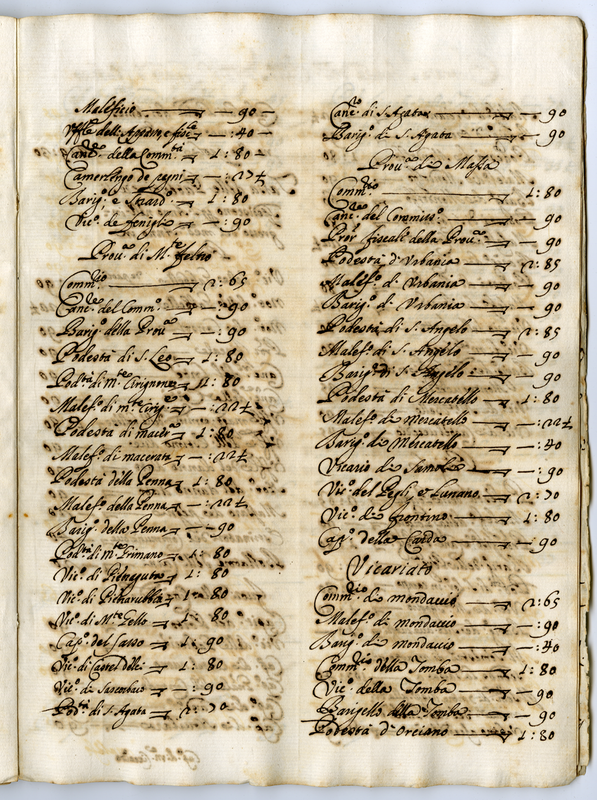 Maleficio — : 90
Canc.re della Comm.ta 1 : 80
Camerlengo de pegni — : 27½
Barig.o e 1 : 80
Vic.o de — : 90
Prou.a di M.te feltro
Comm.rio 2 : 65
Canc.re del Comm.o — : 90
Barig.o della Prou.a — : 90
Podestà di S. Leo 1 : 80
Pod.tà di m.te Cirignone 1 : 80
Malef.o di m.te Cirig.e — : 22½
Podestà di macer.a 1 : 80
Malef.o di macerata — : 22½
Podestà della Penna 1 : 80
Malef.o della Penna — : 22½
Barig.o della Penna — 90
Pod.tà di m.te Grimano 1 : 80
Vic.o di Pietragutola 1 : 80
Vic.o di Pietrarubbia 1 : 80
Vic.o di M.te 1 : 80
Cap.o del Sasso 1 : 90
Vic.o di Castel delci 1 : 80
Vic.o di Sascorbaro — : 90
Pod.tà di S. Agata 2 : 70
Canc.re di S. Agata — 90
Barig.o di S. Agata — 90
Prou.a di Massa
Comm.rio 1 : 80
Canc.re del Commiss.o — : 90
Pro.r fiscale della Prou.a — : 90
Podestà d'Urbania 2 : 85
Malef.o di Urbania — : 90
Barig.o di Urbania — : 90
Podestà di S. Angelo 2 : 85
Malef.o di S. Angelo — : 90
Barig.o di S. Angelo — : 90
Podestà di Mercatello 1 : 80
Malef.o di Mercatello — : 22½
Barig.o di Mercatello — : 40
Vicario di — : 90
Vic.o del Peglio e Lunano 2 : 70
Vic.o di frontino 1 : 80
Cap.o della Carda — : 90
Vicariato
Comm.rio di mondauio 2 : 65
Malef.o di mondauio — : 90
Barig.o di mondauio — : 40
Comm.rio della Tomba 1 : 80
Vic.o della Tomba — : 90
Barigello della Tomba — 90
Podestà d'Orciano 1 : 80